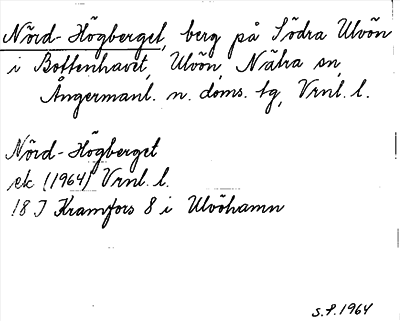 Nörd-Högberget, berg på Södra Ulvön
i Bottenhavet, Ulvön, Nätra sn,
Ångermanl. n. doms. tg, Vrnl. l.
Nörd-Högberget
ek (1964) Vrnl. l.
18 J Kramfors 8 i Ulvöhamn
s. f. 1964